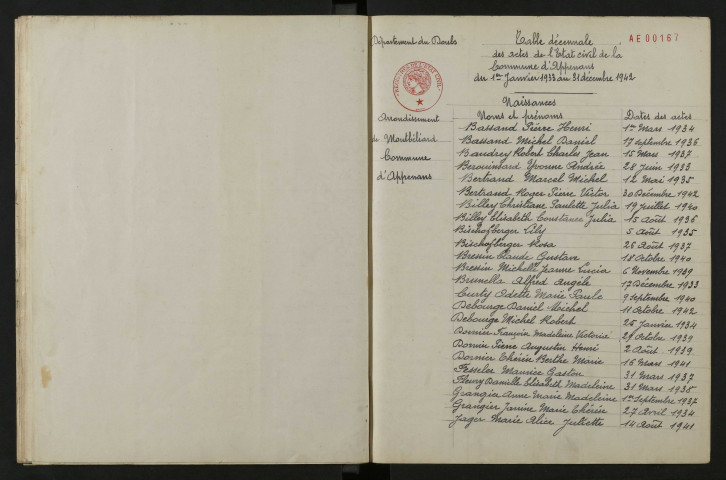 Département du Doubs
Arrondissement
de Montbéliard
Commune
d'Appenans
AE00167
Table décennale
des actes de l'Etat civil de la
Commune d'Appenans
du 1er Janvier 1933 au 31 décembre 1942
Naissances
Noms et prénoms Dates des actes
Bassand Pierre Henri 1er Mars 1934
Bassand Michel Daniel 17 septembre 1936
Baudrey Robert Charles Jean 15 Mars 1937
Yvonne Andrée 28 Juin 1933
Bertrand Marcel Michel 12 Mai 1935
Bertrand Roger Pierre Victor 30 Décembre 1942
Billey Christiane Paulette Julia 19 Juillet 1940
Billey Elisabeth Constance Julia 15 Août 1936
Bischofberger Lily 5 Août 1935
Bischofberger Rosa 26 Août 1937
Bressin Claude Gustave 18 Octobre 1940
Bressin Michelle Jeanne Lucia 6 Novembre 1939
Brunella Alfred Angèle 17 Décembre 1933
Curty Odette Marie Paule 9 Septembre 1940
Debourge Daniel Michel 11 Octobre 1942
Debourge Michel Robert 25 Janvier 1934
Dornier Madeleine Victoria 29 Octobre 1939
Dornier Pierre Augustin Henri 2 Août 1939
Dornier Thérèse Berthe Marie 16 Mars 1941
Fesseler Maurice Gaston 31 Mars 1937
Fleury Danielle Elisabeth Madeleine 31 Mars 1938
Grangier Anne Marie Madeleine 1er Septembre 1937
Grangier Janine Marie Thérèse 27 Avril 1934
Jager Marie Alice Juliette 14 Août 1941